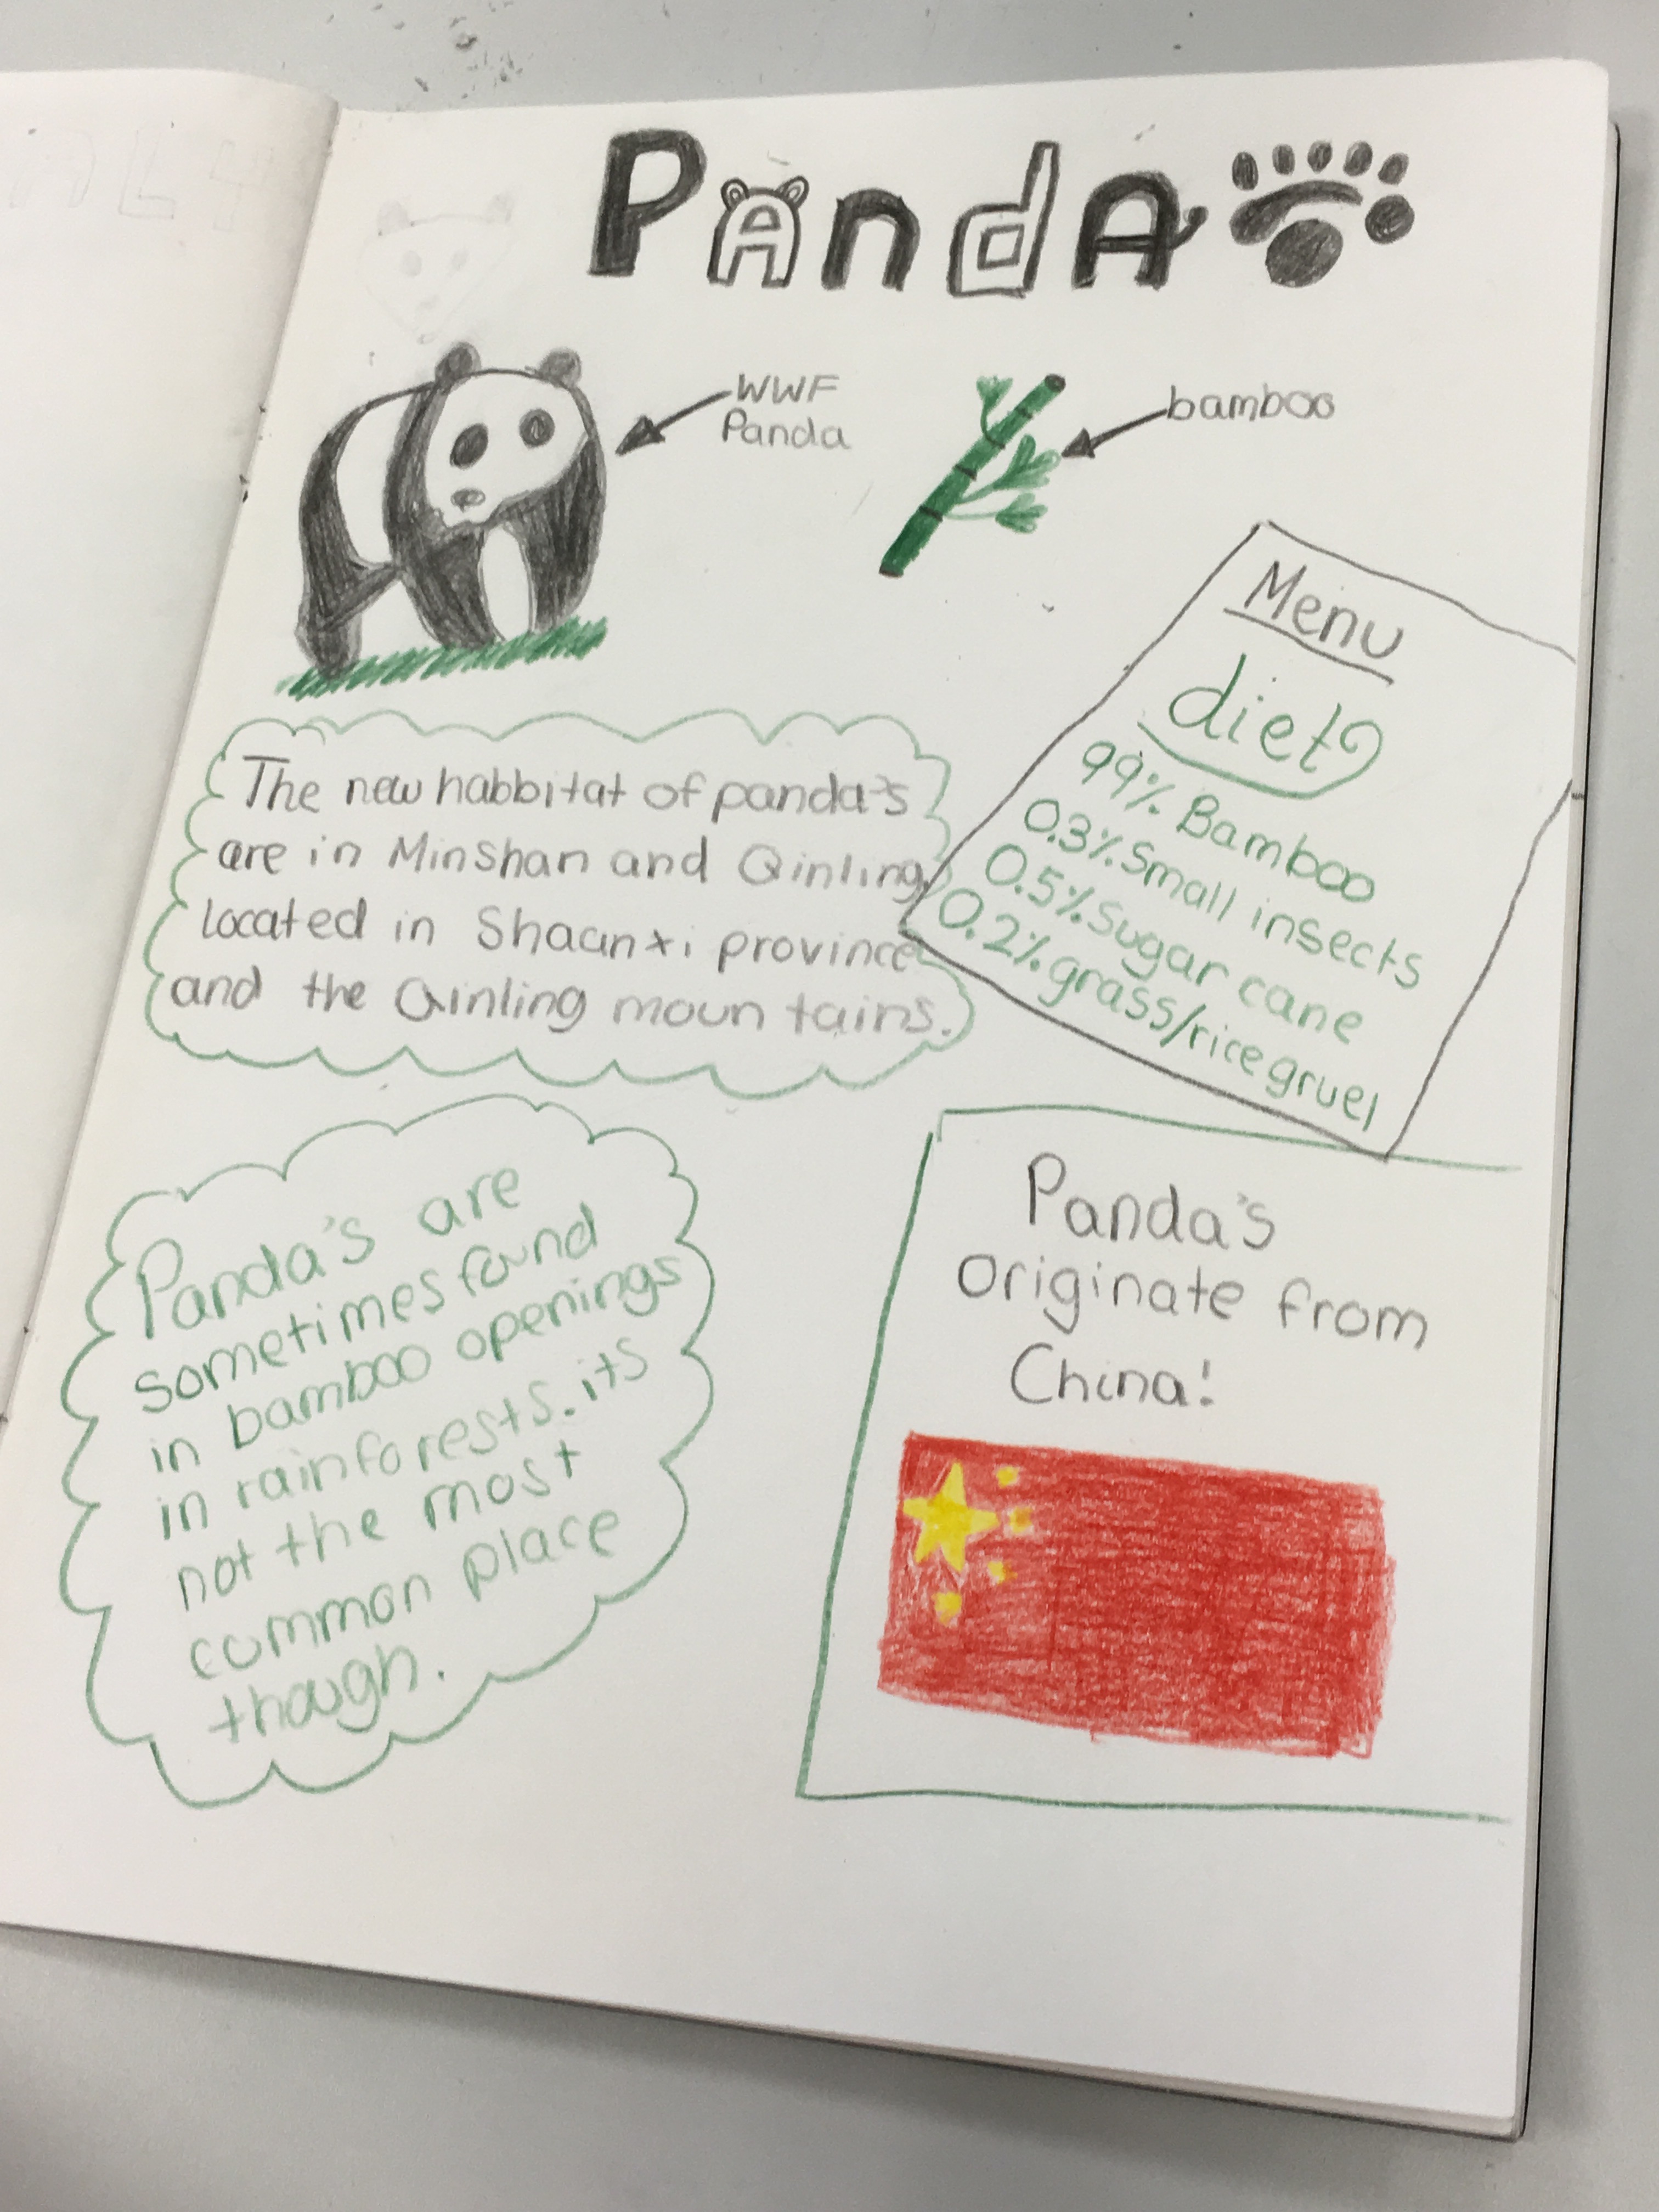 PAndA
WWF
Panda
bamboo
Menu
diet
99% Bamboo
0.3% Small insects
0.5% Sugar cane
0.2% grass/rice gruel
The new habbitat of panda's
are in Minshan and Qinling,
located in Shaanxi province
and the Qinling mountains.
Panda's are
sometimes found
in bamboo openings
in rainforests. its
not the most
common place
though.
Panda's
originate from
China!